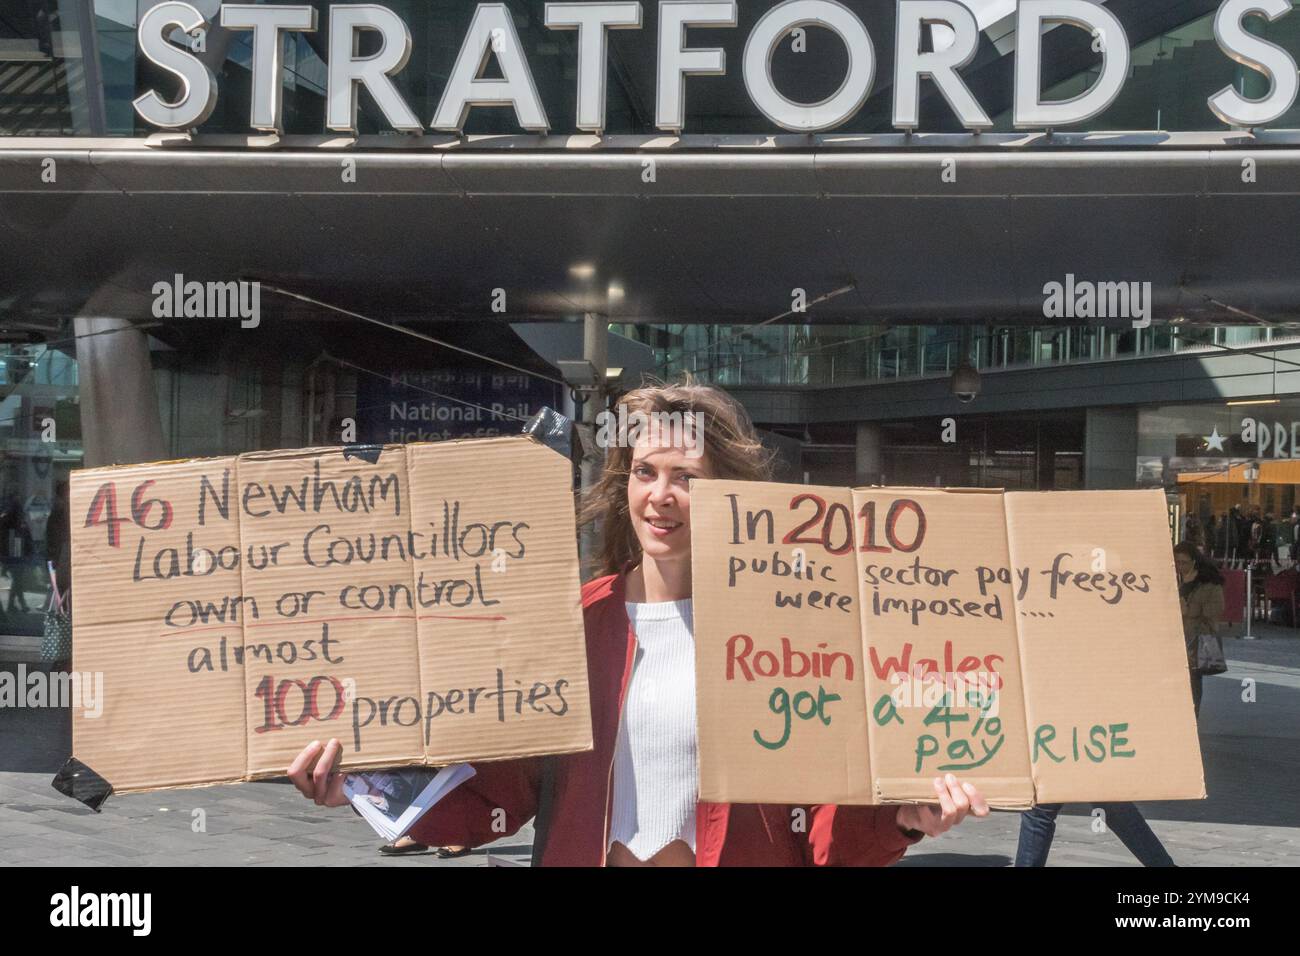 STRATFORD S
National Rail
National Rail
ticket office
PRE
46 Newham
Labour Councillors
own or control
almost
100 properties
In 2010
public sector pay freezes
were imposed ....
Robin Wales
got a 4%
pay RISE
alamy
Image ID: 2YM9CK4
www.alamy.com